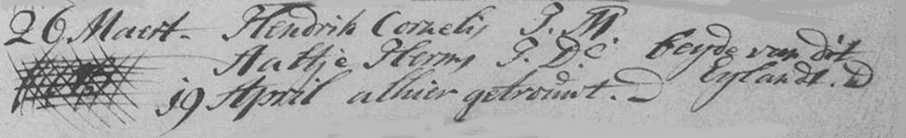 26 Maert - Hendrik Cornelis J. M.
Aattje Herms J. D.e beyde van dit Eylandt.
19 April alhier getrouwt.